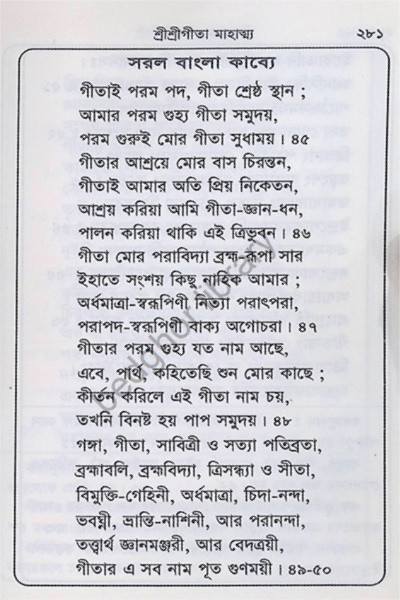 শ্রীশ্রীগীতা মাহাত্ম্য ২৮১
সরল বাংলা কাব্যে
গীতাই পরম পদ, গীতা শ্রেষ্ঠ স্থান ;
আমার পরম গুহ্য গীতা সমুদয়,
পরম গুরুই মোর গীতা সুধাময়। ৪৫
গীতার আশ্রয়ে মোর বাস চিরন্তন,
গীতাই আমার অতি প্রিয় নিকেতন,
আশ্রয় করিয়া আমি গীতা-জ্ঞান-ধন,
পালন করিয়া থাকি এই ত্রিভুবন। ৪৬
গীতা মোর পরাবিদ্যা ব্রহ্ম-রূপা সার
ইহাতে সংশয় কিছু নাহিক আমার ;
অর্ধমাত্রা-স্বরূপিণী নিত্যা পরাৎপরা,
পরাপদ-স্বরূপিণী বাক্য অগোচরা। ৪৭
গীতার পরম গুহ্য যত নাম আছে,
এবে, পার্থ, কহিতেছি শুন মোর কাছে ;
কীর্তন করিলে এই গীতা নাম চয়,
তখনি বিনষ্ট হয় পাপ সমুদয়। ৪৮
গঙ্গা, গীতা, সাবিত্রী ও সত্যা পতিব্রতা,
ব্রহ্মাবলি, ব্রহ্মবিদ্যা, ত্রিসন্ধ্যা ও সীতা,
বিমুক্তি-গেহিনী, অর্ধমাত্রা, চিদা-নন্দা,
ভবঘ্নী, ভ্রান্তি-নাশিনী, আর পরানন্দা,
তত্ত্বার্থ জ্ঞানমঞ্জরী, আর বেদত্রয়ী,
গীতার এ সব নাম পূত গুণময়ী। ৪৯-৫০
bedghor library